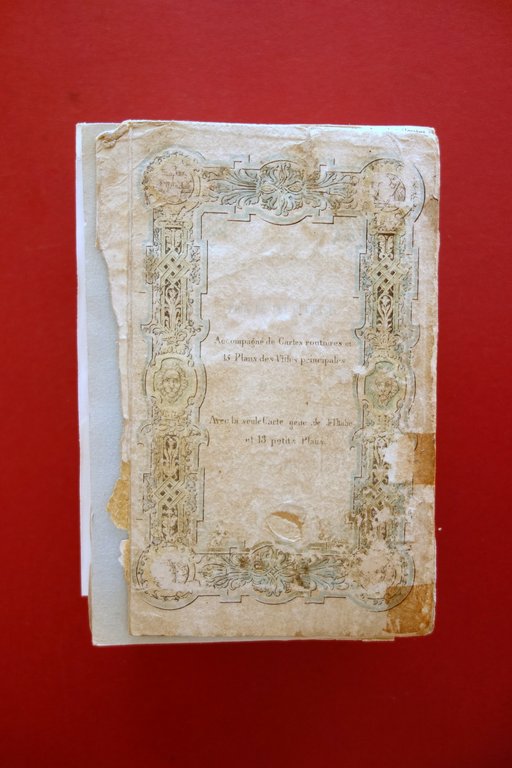 Accompagné de Cartes routières et
15 Plans des Villes principales
Avec la seule Carte géné de l'Italie
et 13 petits Plans.